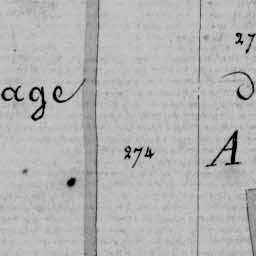 27
age
274 A